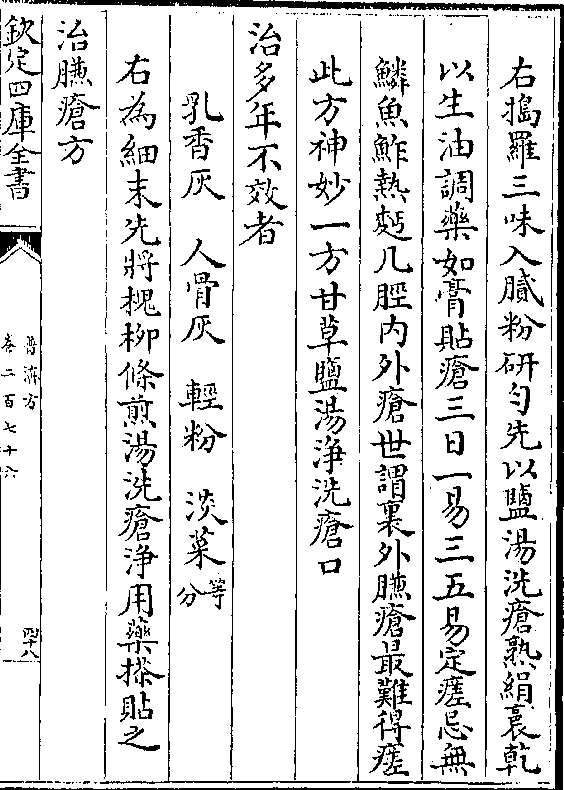 右搗羅三味入膩粉研勻先以鹽湯洗瘡熟絹裛乾
以生油調藥如膏貼瘡三日一易三五易定瘥忌無
鱗魚鮓熱麫凡脛内外瘡世謂裏外臁瘡最難得瘥
此方神妙一方甘草鹽湯淨洗瘡口
治多年不效者
乳香灰　人骨灰　輕粉　淡菜等分
右為細末先將槐柳條煎湯洗瘡淨用藥搽貼之
治臁瘡方
欽定四庫全書
普濟方
卷二百七十六
四十八